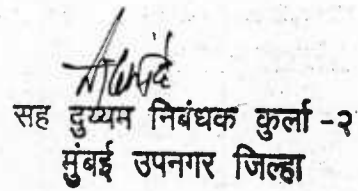 सह दुय्यम निबंधक कुर्ला -२
मुंबई उपनगर जिल्हा